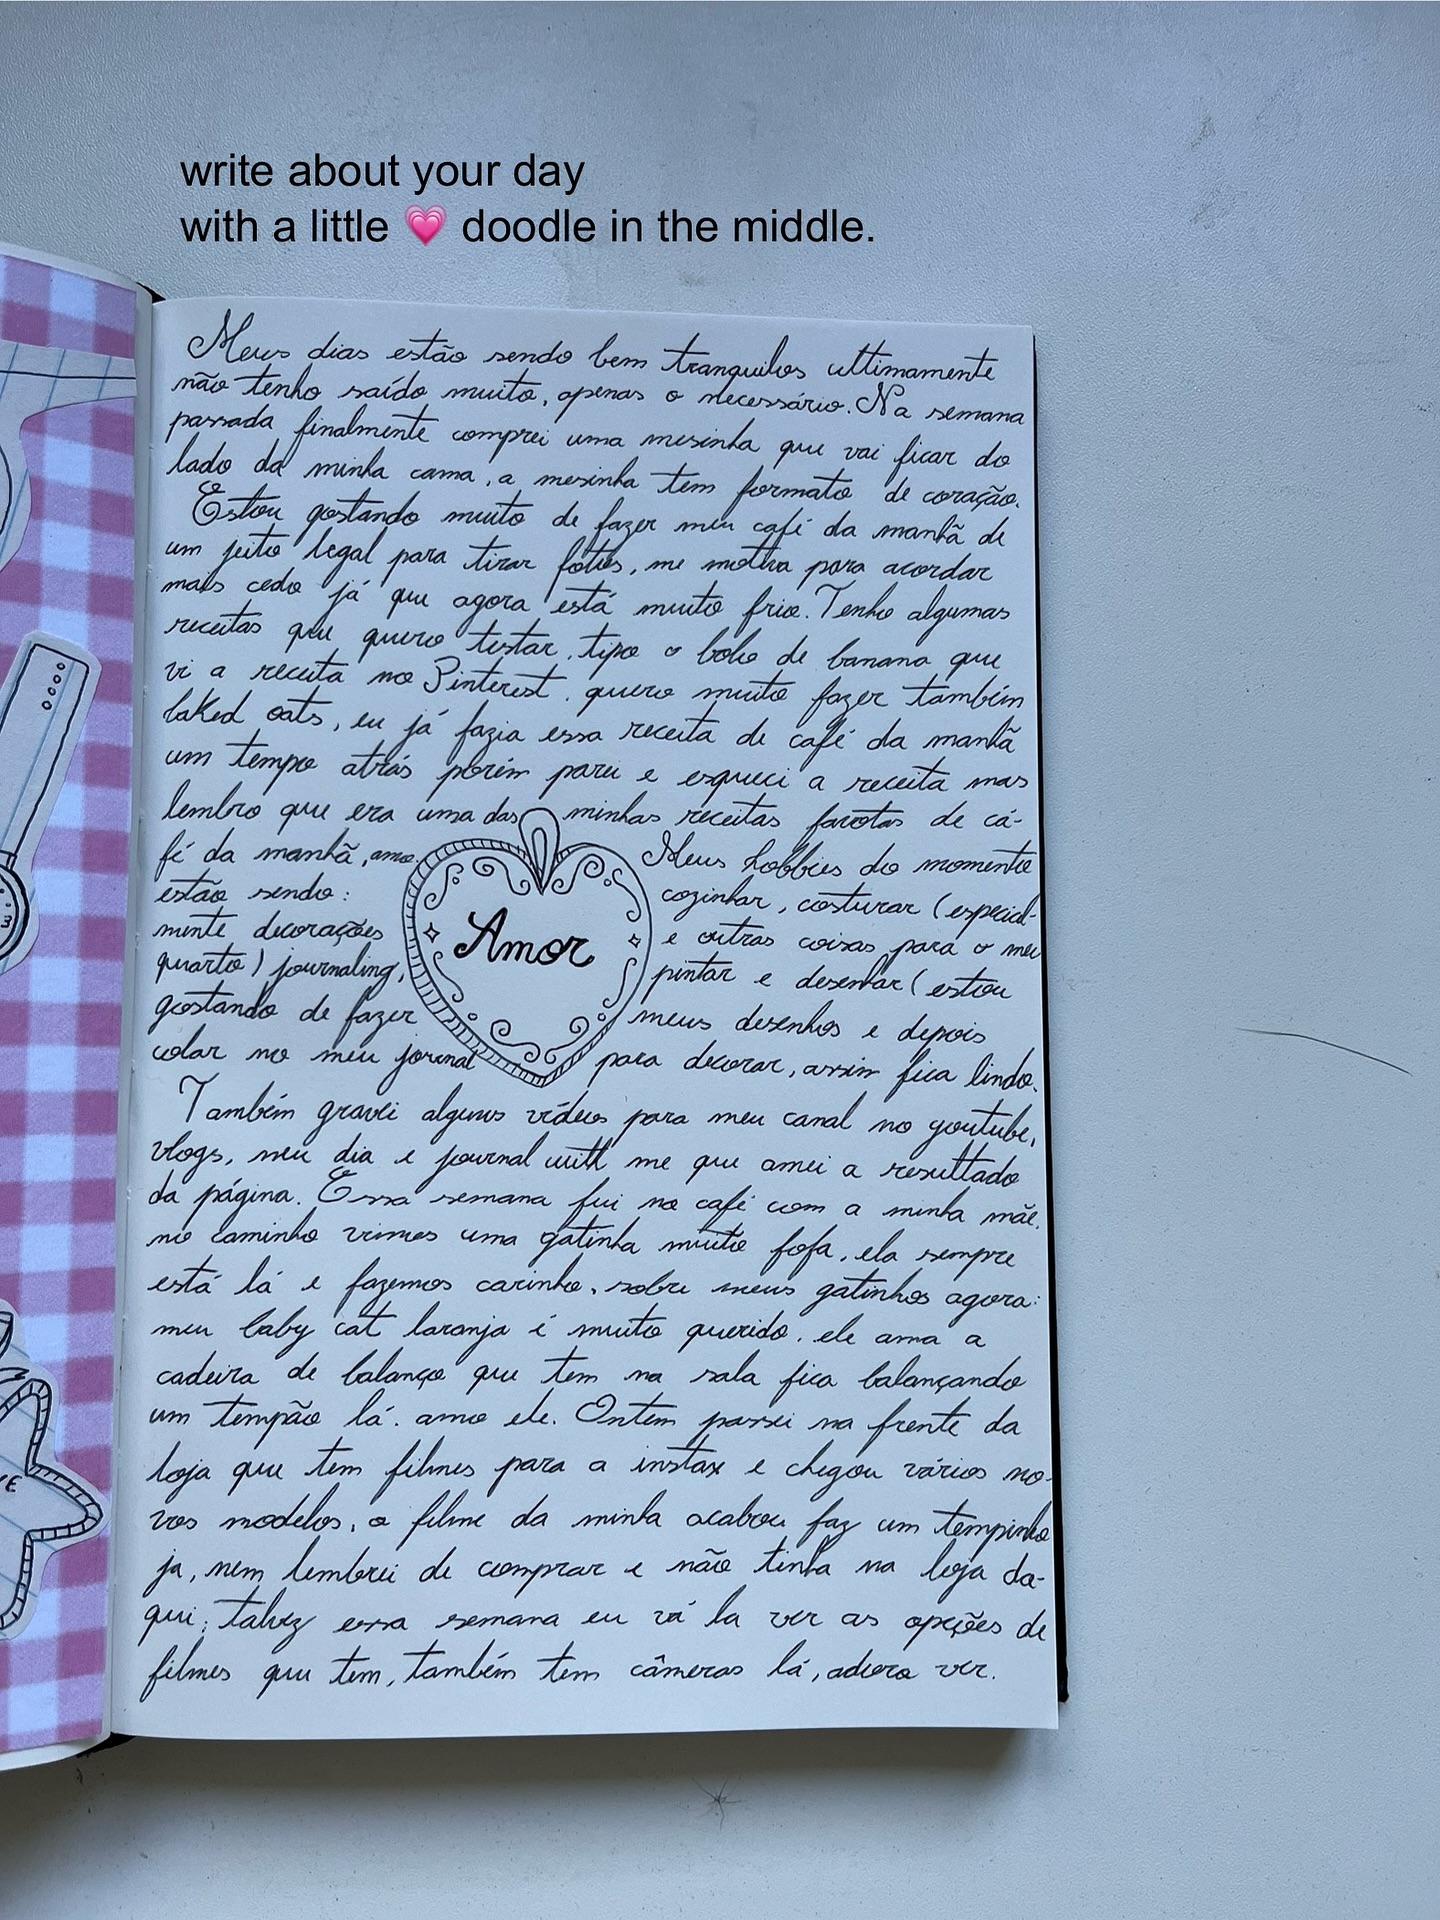 write about your day
with a little 💗 doodle in the middle.
Meus dias estão sendo bem tranquilos ultimamente
não tenho saído muito, apenas o necessário. Na semana
passada finalmente comprei uma mesinha que vai ficar do
lado da minha cama, a mesinha tem formato de coração.
Estou gostando muito de fazer meu café da manhã de
um jeito legal para tirar fotos, me motiva para acordar
mais cedo já que agora está muito frio. Tenho algumas
receitas que quero testar, tipo o bolo de banana que
vi a receita no Pinterest, quero muito fazer também
baked oats, eu já fazia essa receita de café da manhã
um tempo atrás porém parei e esqueci a receita mas
lembro que era uma das minhas receitas favotas de cá-
fé da manhã, amo. Meus hobbies do momento
estão sendo: cozinhar, costurar (especial-
mente decorações e outras coisas para o meu
quarto) journaling, pintar e desenhar (estou
gostando de fazer meus desenhos e depois
colar no meu jornal para decorar, assim fica lindo.
Amor
Também gravei alguns vídeos para meu canal no youtube,
vlogs, meu dia e journal with me que amei a resultado
da página. Essa semana fui no café com a minha mãe,
no caminho vimos uma gatinha muito fofa, ela sempre
está lá e fazemos carinho, sobre meus gatinhos agora:
meu baby cat laranja é muito querido, ele ama a
cadeira de balanço que tem na sala fica balançando
um tempão lá. amo ele. Ontem passei na frente da
loja que tem filmes para a instax e chegou vários no-
vos modelos, o filme da minha acabou faz um tempinho
ja, nem lembrei de comprar e não tinha na loja da-
qui, talvez essa semana eu vá la ver as opções de
filmes que tem, também tem câmeras lá, adoro ver.